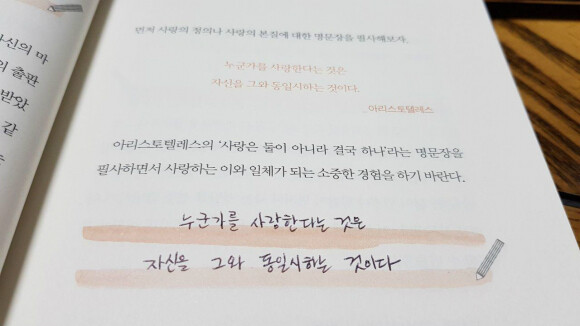 자신의 마
의 출판
받았
같
는
먼저 사랑의 정의나 사랑의 본질에 대한 명문장을 필사해보자.
누군가를 사랑한다는 것은
자신을 그와 동일시하는 것이다.
아리스토텔레스
아리스토텔레스의 '사랑은 둘이 아니라 결국 하나'라는 명문장을
필사하면서 사랑하는 이와 일체가 되는 소중한 경험을 하기 바란다.
누군가를 사랑한다는 것은
자신을 그와 동일시하는 것이다